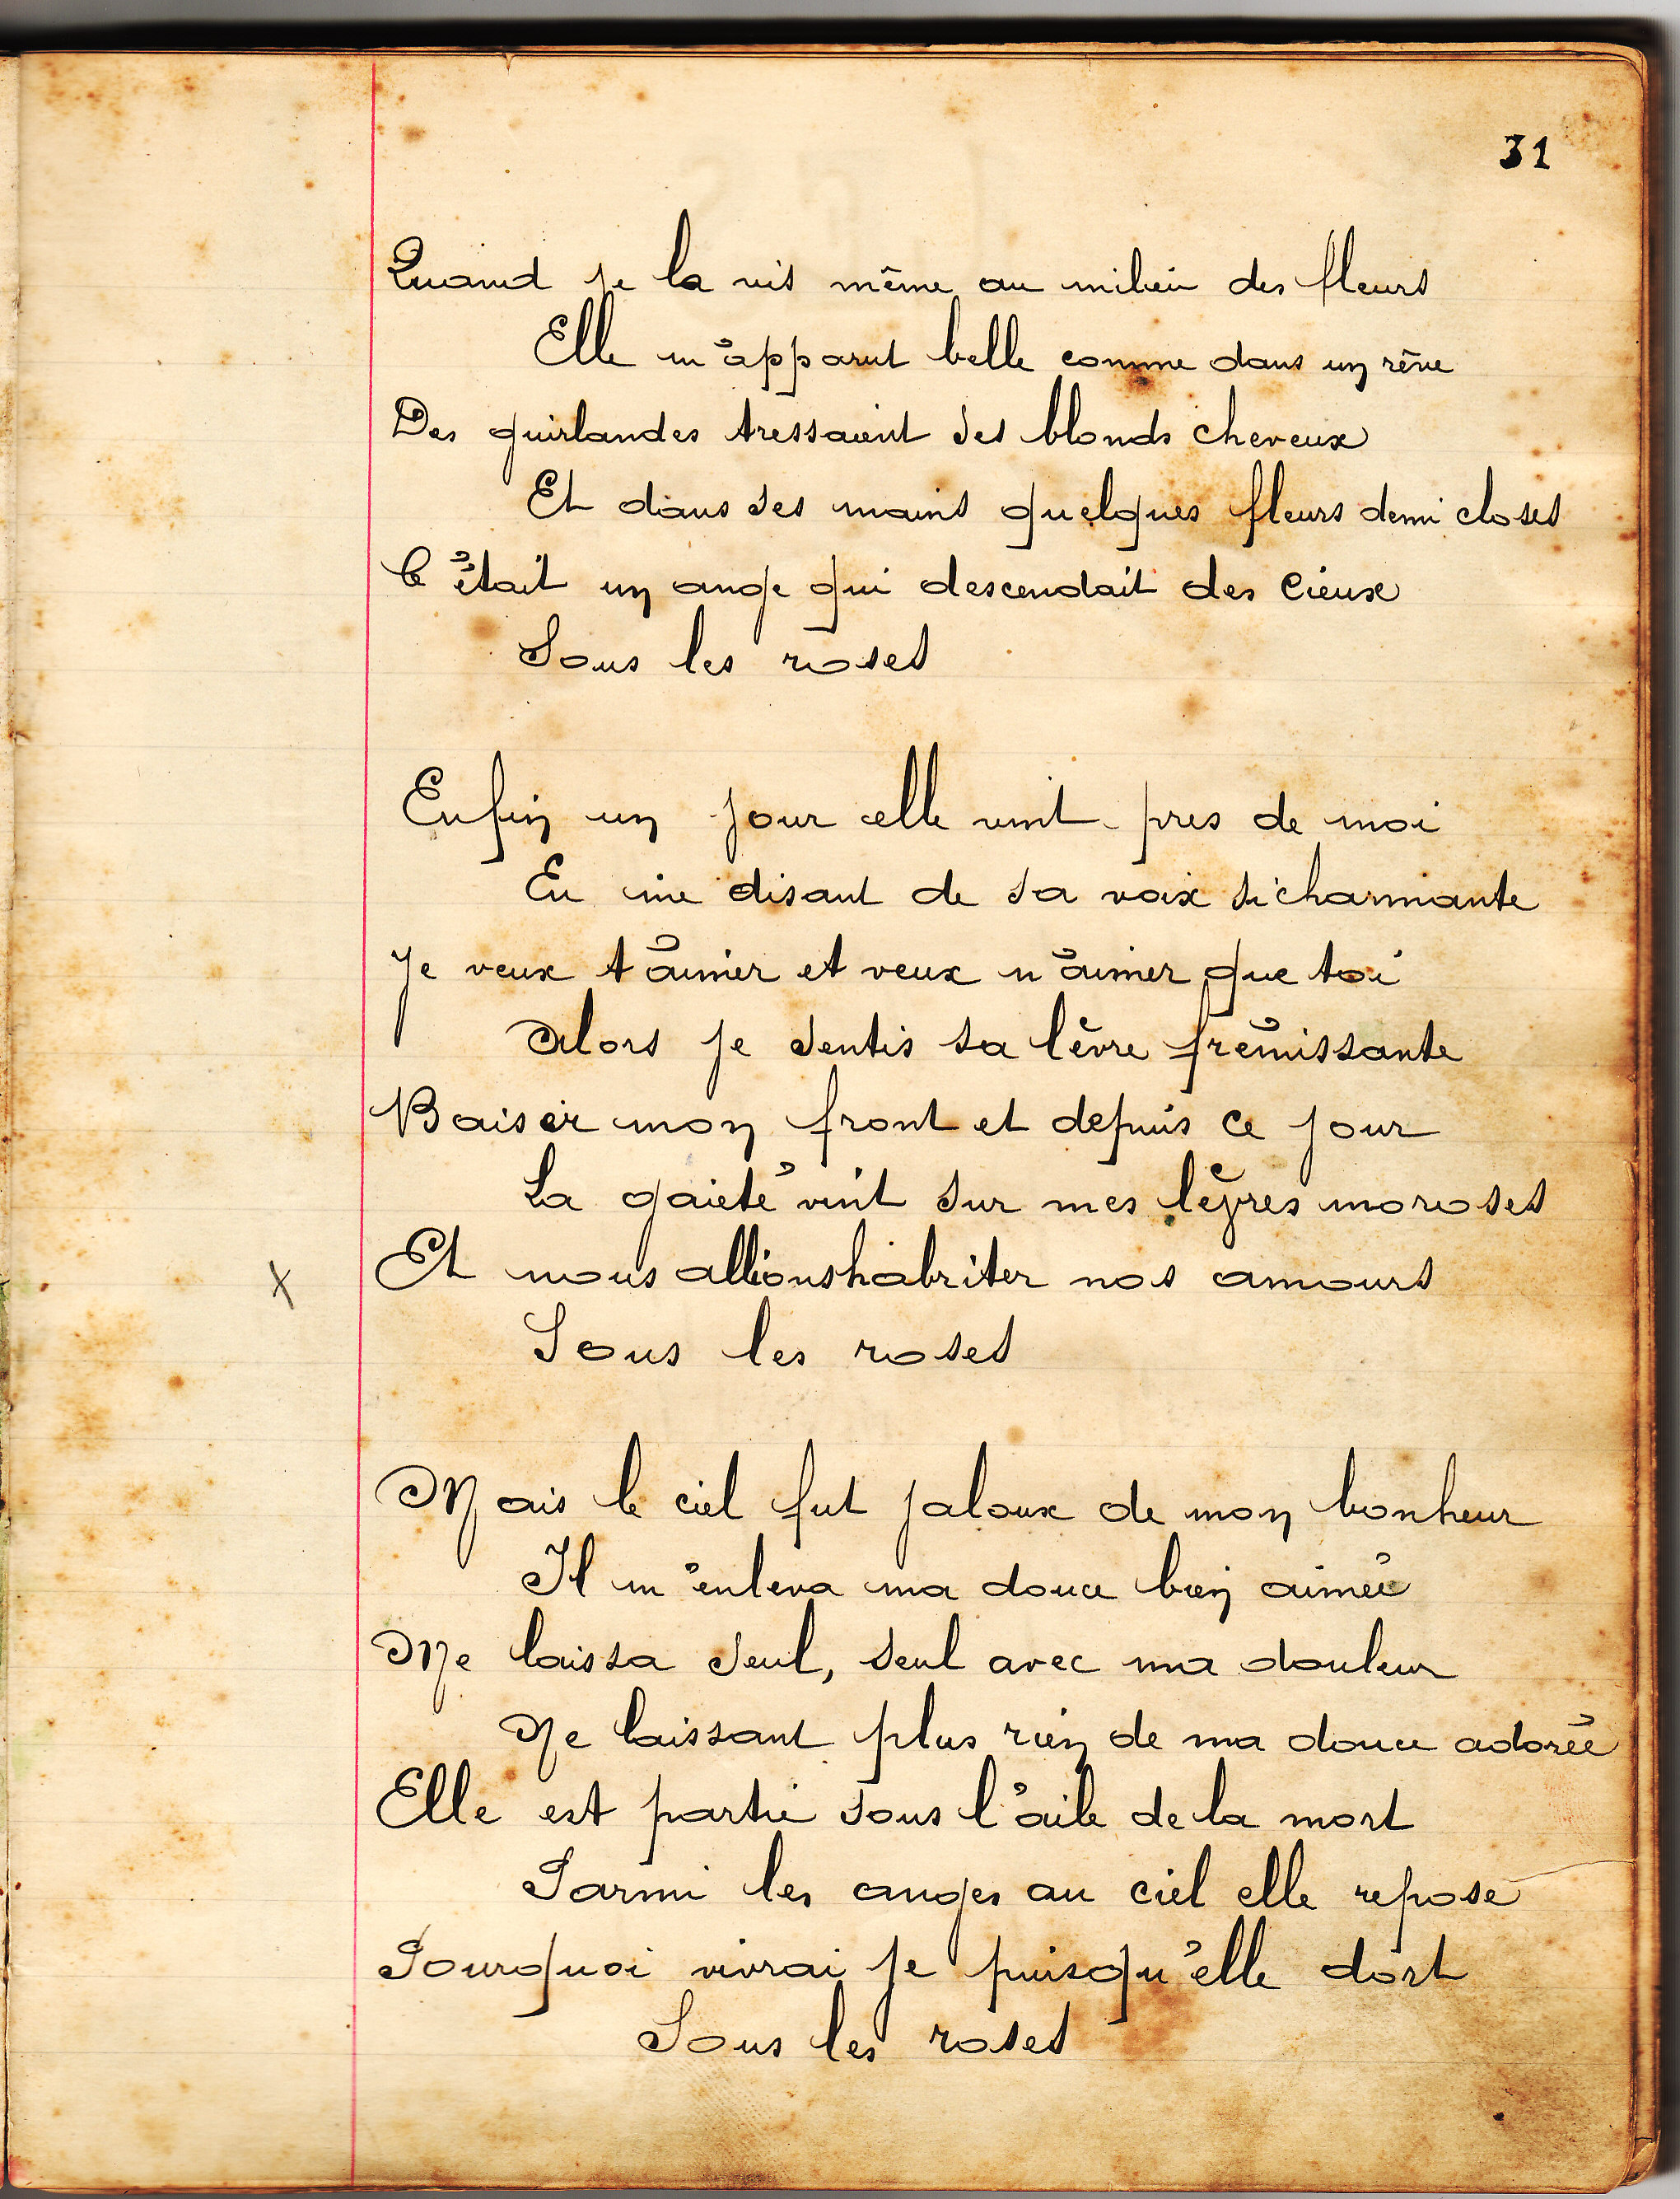 31
Quand je la vis même au milieu des fleurs
Elle m'apparut belle comme dans un rêve
Des guirlandes tressaient ses blonds cheveux
Et dans ses mains quelques fleurs demi closes
C'était un ange qui descendait des cieux
Sous les roses
Enfin un jour elle vint près de moi
En me disant de sa voix si charmante
Je veux t'aimer et veux n'aimer que toi
Alors je sentis sa lèvre frémissante
Baiser mon front et depuis ce jour
La gaieté vint sur mes lèvres moroses
X Et nous allions habriter nos amours
Sous les roses
Mais le ciel fut jaloux de mon bonheur
Il m'enleva ma douce bien aimée
Me laissa seul, seul avec ma douleur
Ne laissant plus rien de ma douce adorée
Elle est partie sous l'aile de la mort
Parmi les anges au ciel elle repose
Pourquoi vivrai je puisqu'elle dort
Sous les roses